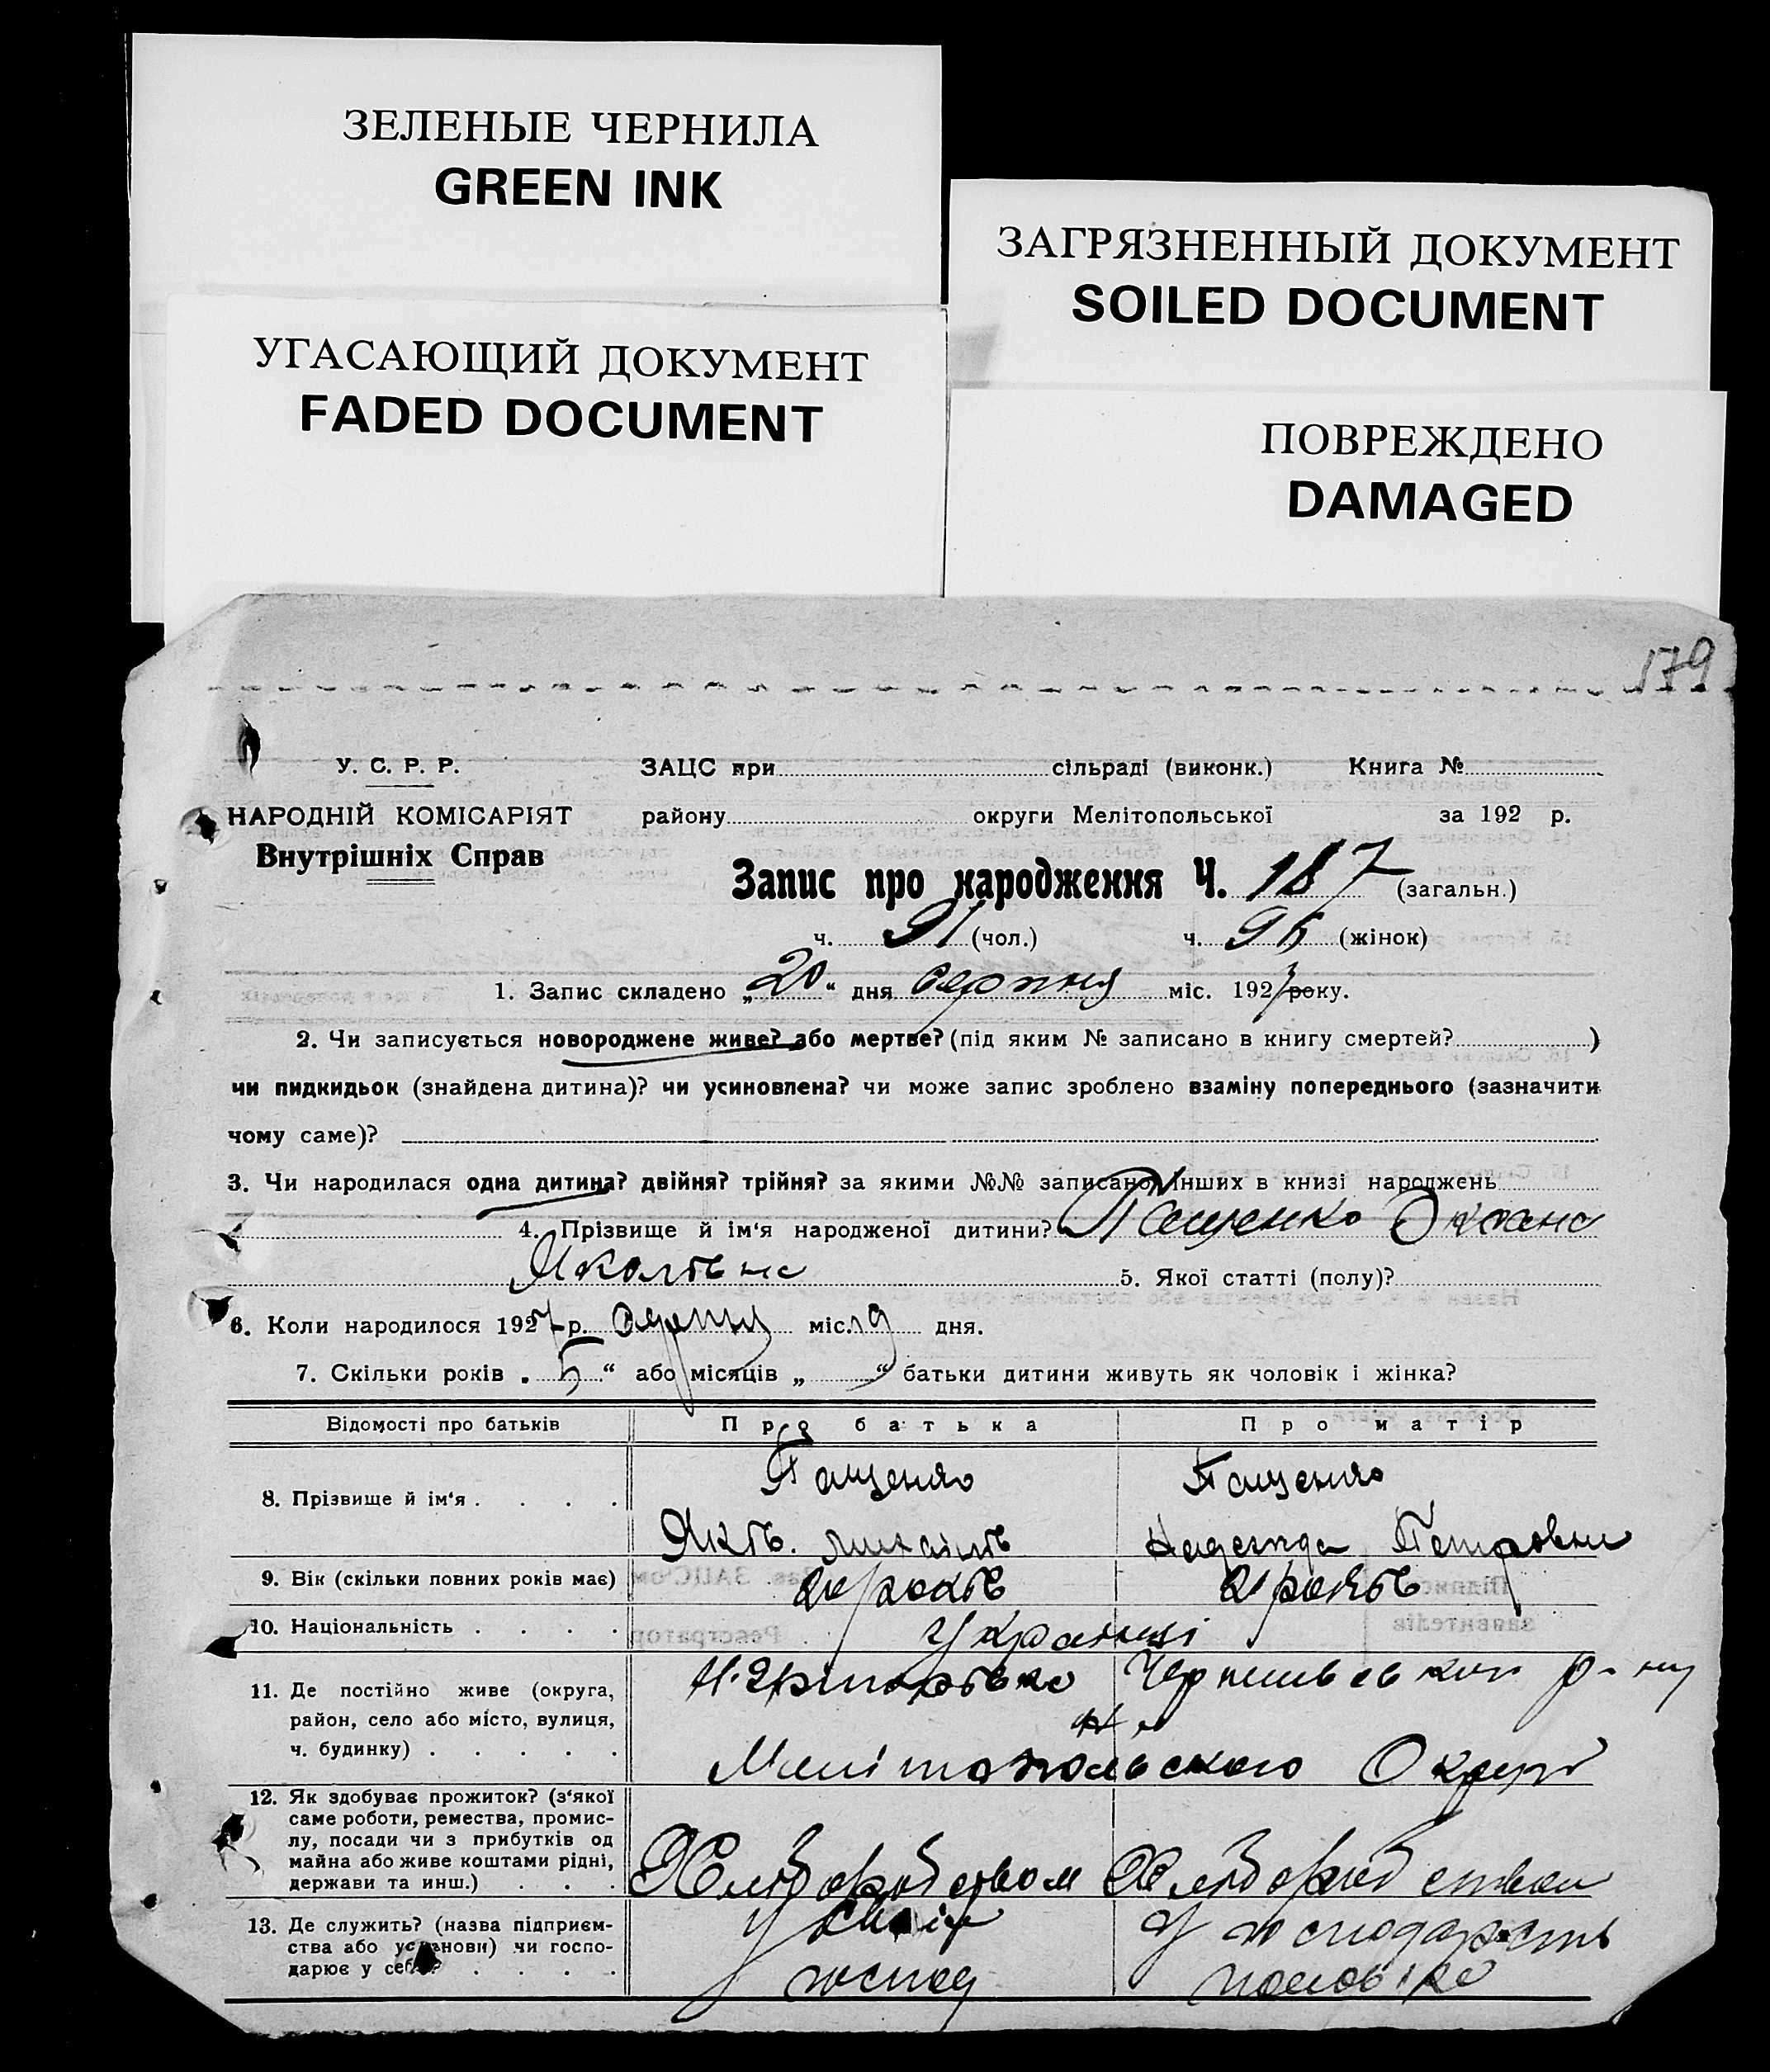 ЗЕЛЕНЫЕ ЧЕРНИЛА
GREEN INK
ЗАГРЯЗНЕННЫЙ ДОКУМЕНТ
SOILED DOCUMENT
УГАСАЮЩИЙ ДОКУМЕНТ
FADED DOCUMENT
ПОВРЕЖДЕНО
DAMAGED
179
У. С. Р. Р. ЗАЦС при сільраді (виконк.) Книга №
НАРОДНІЙ КОМІСАРІЯТ району округи Мелітопольської за 192 р.
Внутрішніх Справ
Запис про народження Ч. 187 (загальн.)
ч. 91 (чол.) ч. 96 (жінок)
1. Запис складено „20“ дня серпня міс. 1927 року.
2. Чи записується новороджене живе? або мертве? (під яким № записано в книгу смертей? )
чи пидкидьок (знайдена дитина)? чи усиновлена? чи може запис зроблено взаміну попереднього (зазначити
чому саме)?
3. Чи народилася одна дитина? двійня? трійня? за якими №№ записано інших в книзі народжень
4. Прізвище й ім‘я народженої дитини? Пащенко
5. Якої статті (полу)?
6. Коли народилося 1927 р. серпня міс. 19 дня.
7. Скільки років „5“ або місяців „ “ батьки дитини живуть як чоловік і жінка?
Відомості про батьків Про батька Про матір
Пащенко Пащенко
8. Прізвище й ім‘я . . . .
Яків. Надежда Петровна
9. Вік (скільки повних років має) років 21 років
10. Національність . . . . Українці
11. Де постійно живе (округа,
район, село або місто, вулиця,
ч. будинку) . . . . .
р-ну
Мелітопольского Округи
12. Як здобуває прожиток? (з‘якої
саме роботи, ремества, промис-
лу, посади чи з прибутків од
майна або живе коштами рідні,
держави та инш.) . . .
Хліборобством Хліборобством
13. Де служить? (назва підприєм-
ства або установи) чи госпо-
дарює у себе? . . . .
у своїм у господарстві
господ чоловіка